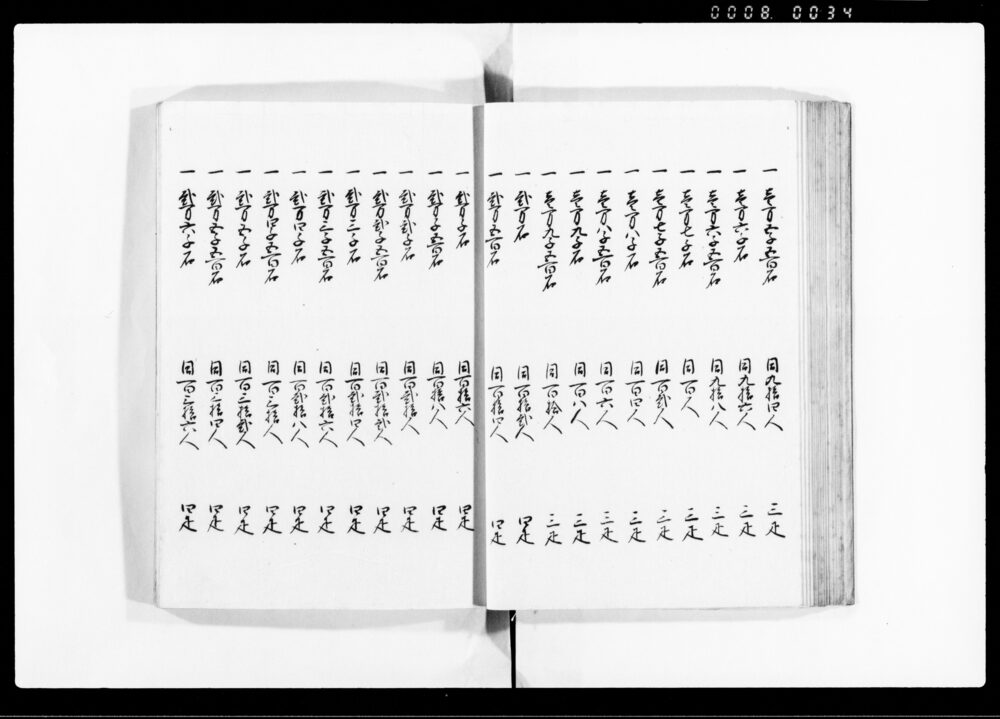 0008 0034
一 壱万五千五百石 同九拾四人 三疋
一 壱万六千石 同九拾六人 三疋
一 壱万六千五百石 同九拾八人 三疋
一 壱万七千石 同百人 三疋
一 壱万七千五百石 同百弐人 三疋
一 壱万八千石 同百四人 三疋
一 壱万八千五百石 同百六人 三疋
一 壱万九千石 同百八人 三疋
一 壱万九千五百石 同百拾人 三疋
一 弐万石 同百拾弐人 四疋
一 弐万五百石 同百拾四人 四疋
一 弐万千石 同百拾六人 四疋
一 弐万千五百石 同百拾八人 四疋
一 弐万弐千石 同百弐拾人 四疋
一 弐万弐千五百石 同百弐拾弐人 四疋
一 弐万三千石 同百弐拾四人 四疋
一 弐万三千五百石 同百弐拾六人 四疋
一 弐万四千石 同百弐拾八人 四疋
一 弐万四千五百石 同百三拾人 四疋
一 弐万五千石 同百三拾弐人 四疋
一 弐万五千五百石 同百三拾四人 四疋
一 弐万六千石 同百三拾六人 四疋